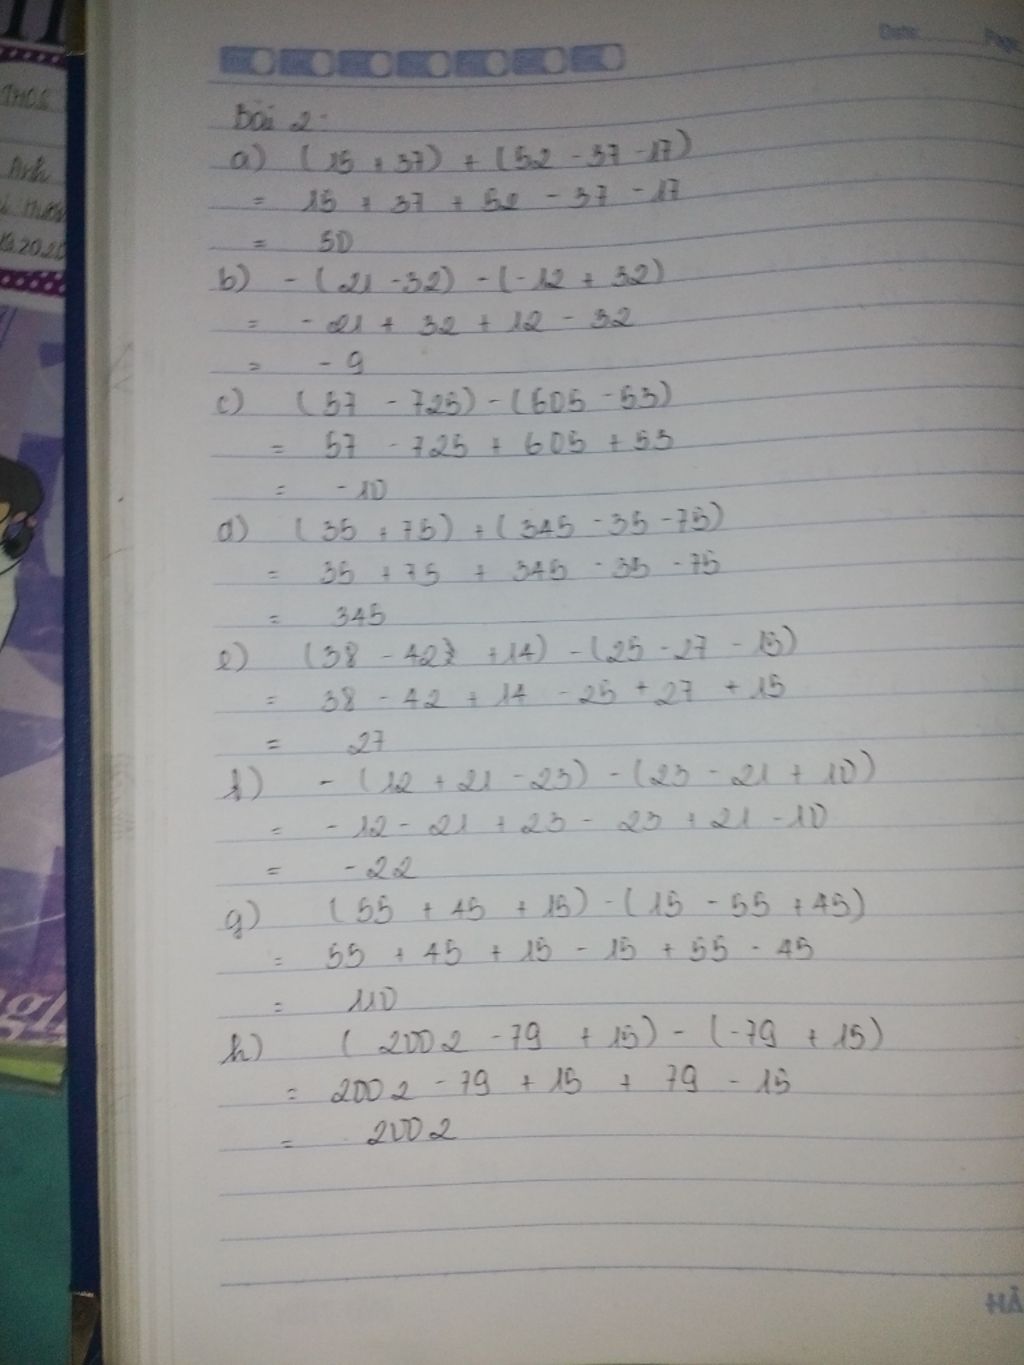 THCS
Anh
2020
Date: Page:
Bài 2:
a) (15 + 37) + (52 - 37 - 17)
= 15 + 37 + 52 - 37 - 17
= 50
b) - (21 - 32) - (-12 + 32)
= - 21 + 32 + 12 - 32
= - 9
c) (57 - 725) - (605 - 53)
= 57 - 725 + 605 + 53
= - 10
d) (35 + 75) + (345 - 35 - 75)
= 35 + 75 + 345 - 35 - 75
= 345
e) (38 - 42 + 14) - (25 - 27 - 15)
= 38 - 42 + 14 - 25 + 27 + 15
= 27
f) - (12 + 21 - 23) - (23 - 21 + 10)
= - 12 - 21 + 23 - 23 + 21 - 10
= - 22
g) (55 + 45 + 15) - (15 - 55 + 45)
= 55 + 45 + 15 - 15 + 55 - 45
= 110
h) (2002 - 79 + 15) - (-79 + 15)
= 2002 - 79 + 15 + 79 - 15
= 2002
HẢ